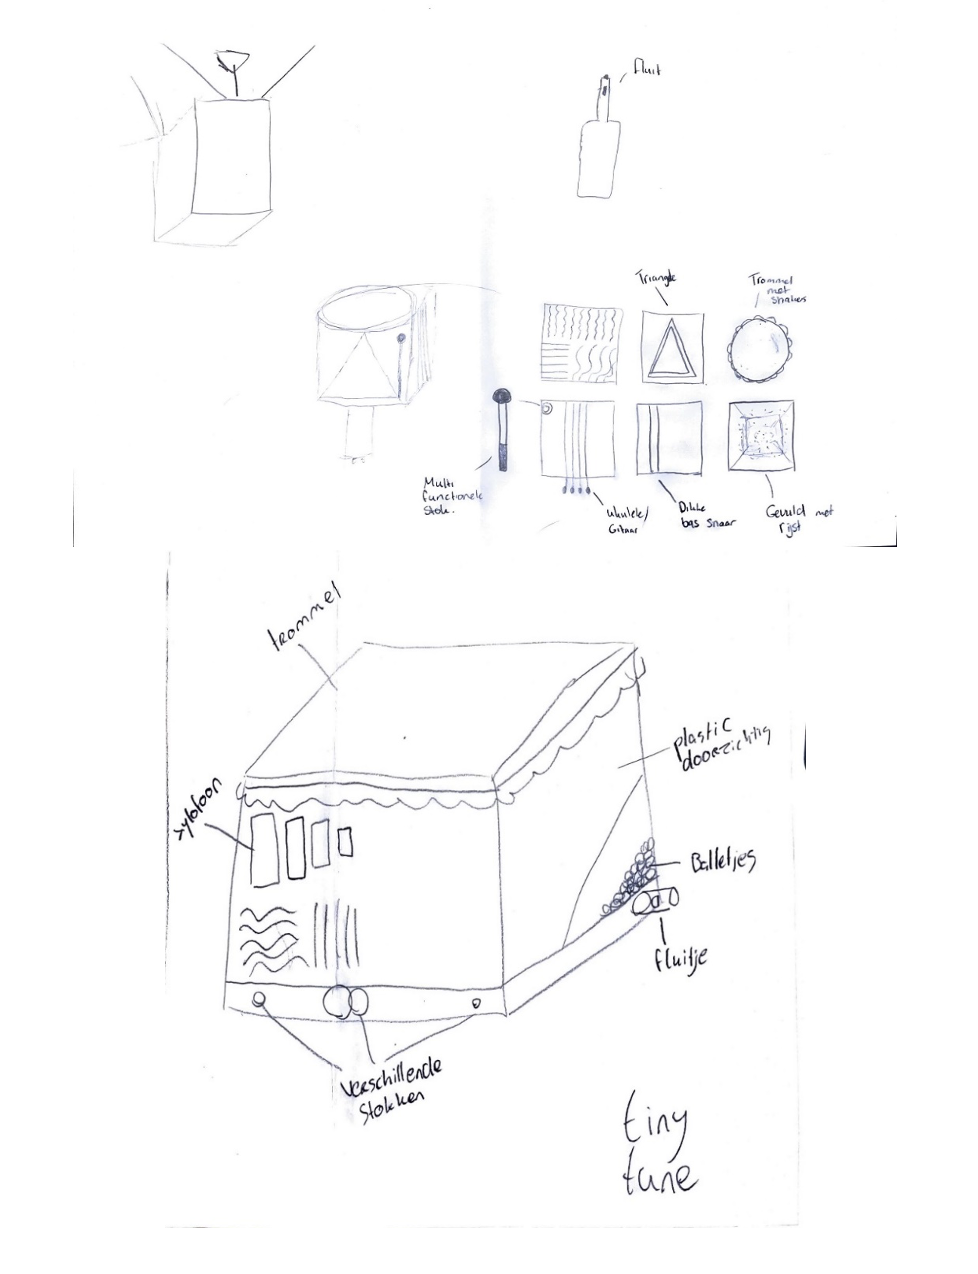 fluit
Triangle
Trommel
met
shakers
Multi
functionele
stok.
Ukulele/
Gitaar
Dikke
bas snaar
Gevuld met
rijst
trommel
plastic
doorzichtig
xylofoon
Balletjes
fluitje
verschillende
stokken
tiny
tune